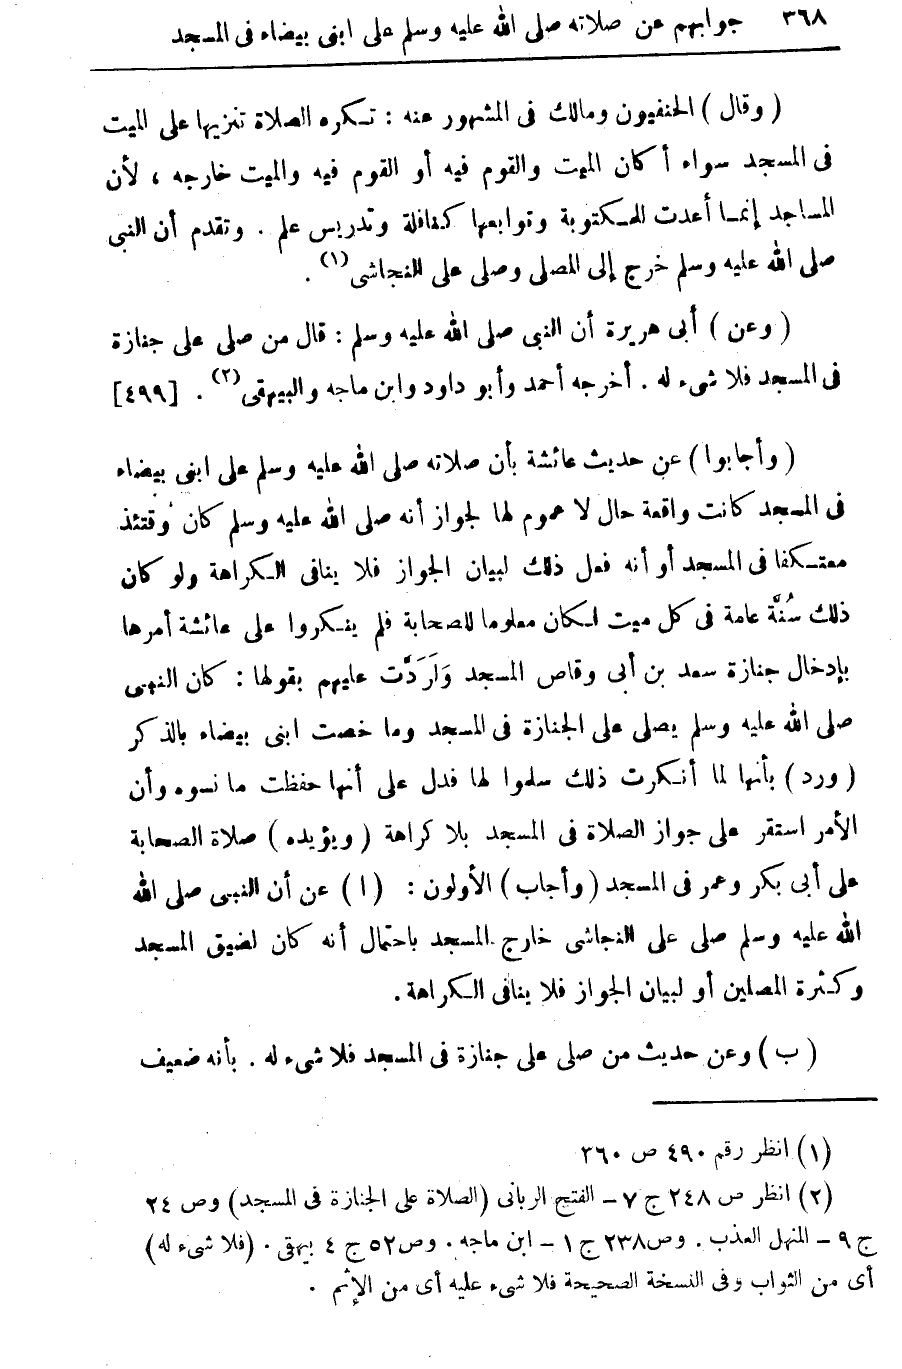 ٣٦٨ جوابهم عن صلاته صلى الله عليه وسلم على ابنى بيضاء فى المسجد
( وقال ) الحنفيون ومالك فى المشهور عنه : تكره الصلاة تنزيها على الميت
فى المسجد سواء أ كان الميت والقوم فيه أو القوم فيه والميت خارجه ، لأن
المساجد إنما أعدت للمكتوبة وتوابعها كنافلة وتدريس علم . وتقدم أن النبى
صلى الله عليه وسلم خرج إلى المصلى وصلى على النجاشى (١) .
( وعن ) أبى هريرة أن النبى صلى الله عليه وسلم : قال من صلى على جنازة
فى المسجد فلا شىء له . أخرجه أحمد وأبو داود وابن ماجه والبيهقى (٢) . [٤٩٩]
( وأجابوا ) عن حديث عائشة بأن صلاته صلى الله عليه وسلم على ابنى بيضاء
فى المسجد كانت واقعة حال لا عموم لها لجواز أنه صلى الله عليه وسلم كان وقتئذ
معتكفا فى المسجد أو أنه فعل ذلك لبيان الجواز فلا ينافى الكراهة ولو كان
ذلك سُنَّة عامة فى كل ميت لكان معلوما للصحابة فلم ينكروا على عائشة أمرها
بإدخال جنازة سعد بن أبى وقاص المسجد وَلَرَدَّت عليهم بقولها : كان النبى
صلى الله عليه وسلم يصلى على الجنازة فى المسجد وما خصت ابنى بيضاء بالذكر
( ورد ) بأنها لما أنكرت ذلك سلموا لها فدل على أنها حفظت ما نسوه وأن
الأمر استقر على جواز الصلاة فى المسجد بلا كراهة ( ويؤيده ) صلاة الصحابة
على أبى بكر وعمر فى المسجد ( وأجاب ) الأولون : ( ا ) عن أن النبى صلى الله
الله عليه وسلم صلى على النجاشى خارج المسجد باحتمال أنه كان لضيق المسجد
وكثرة المصلين أو لبيان الجواز فلا ينافى الكراهة .
( ب ) وعن حديث من صلى على جنازة فى المسجد فلا شىء له . بأنه ضعيف
(١) انظر رقم ٤٩٠ ص ٣٦٠
(٢) انظر ص ٢٤٨ ج ٧ – الفتح الربانى (الصلاة على الجنازة فى المسجد) وص ٢٤
ج ٩ – المنهل العذب . وص ٢٣٨ ج ١ – ابن ماجه . وص ٥٢ ج ٤ بيهقى . (فلا شىء له)
أى من الثواب وفى النسخة الصحيحة فلا شىء عليه أى من الإثم .